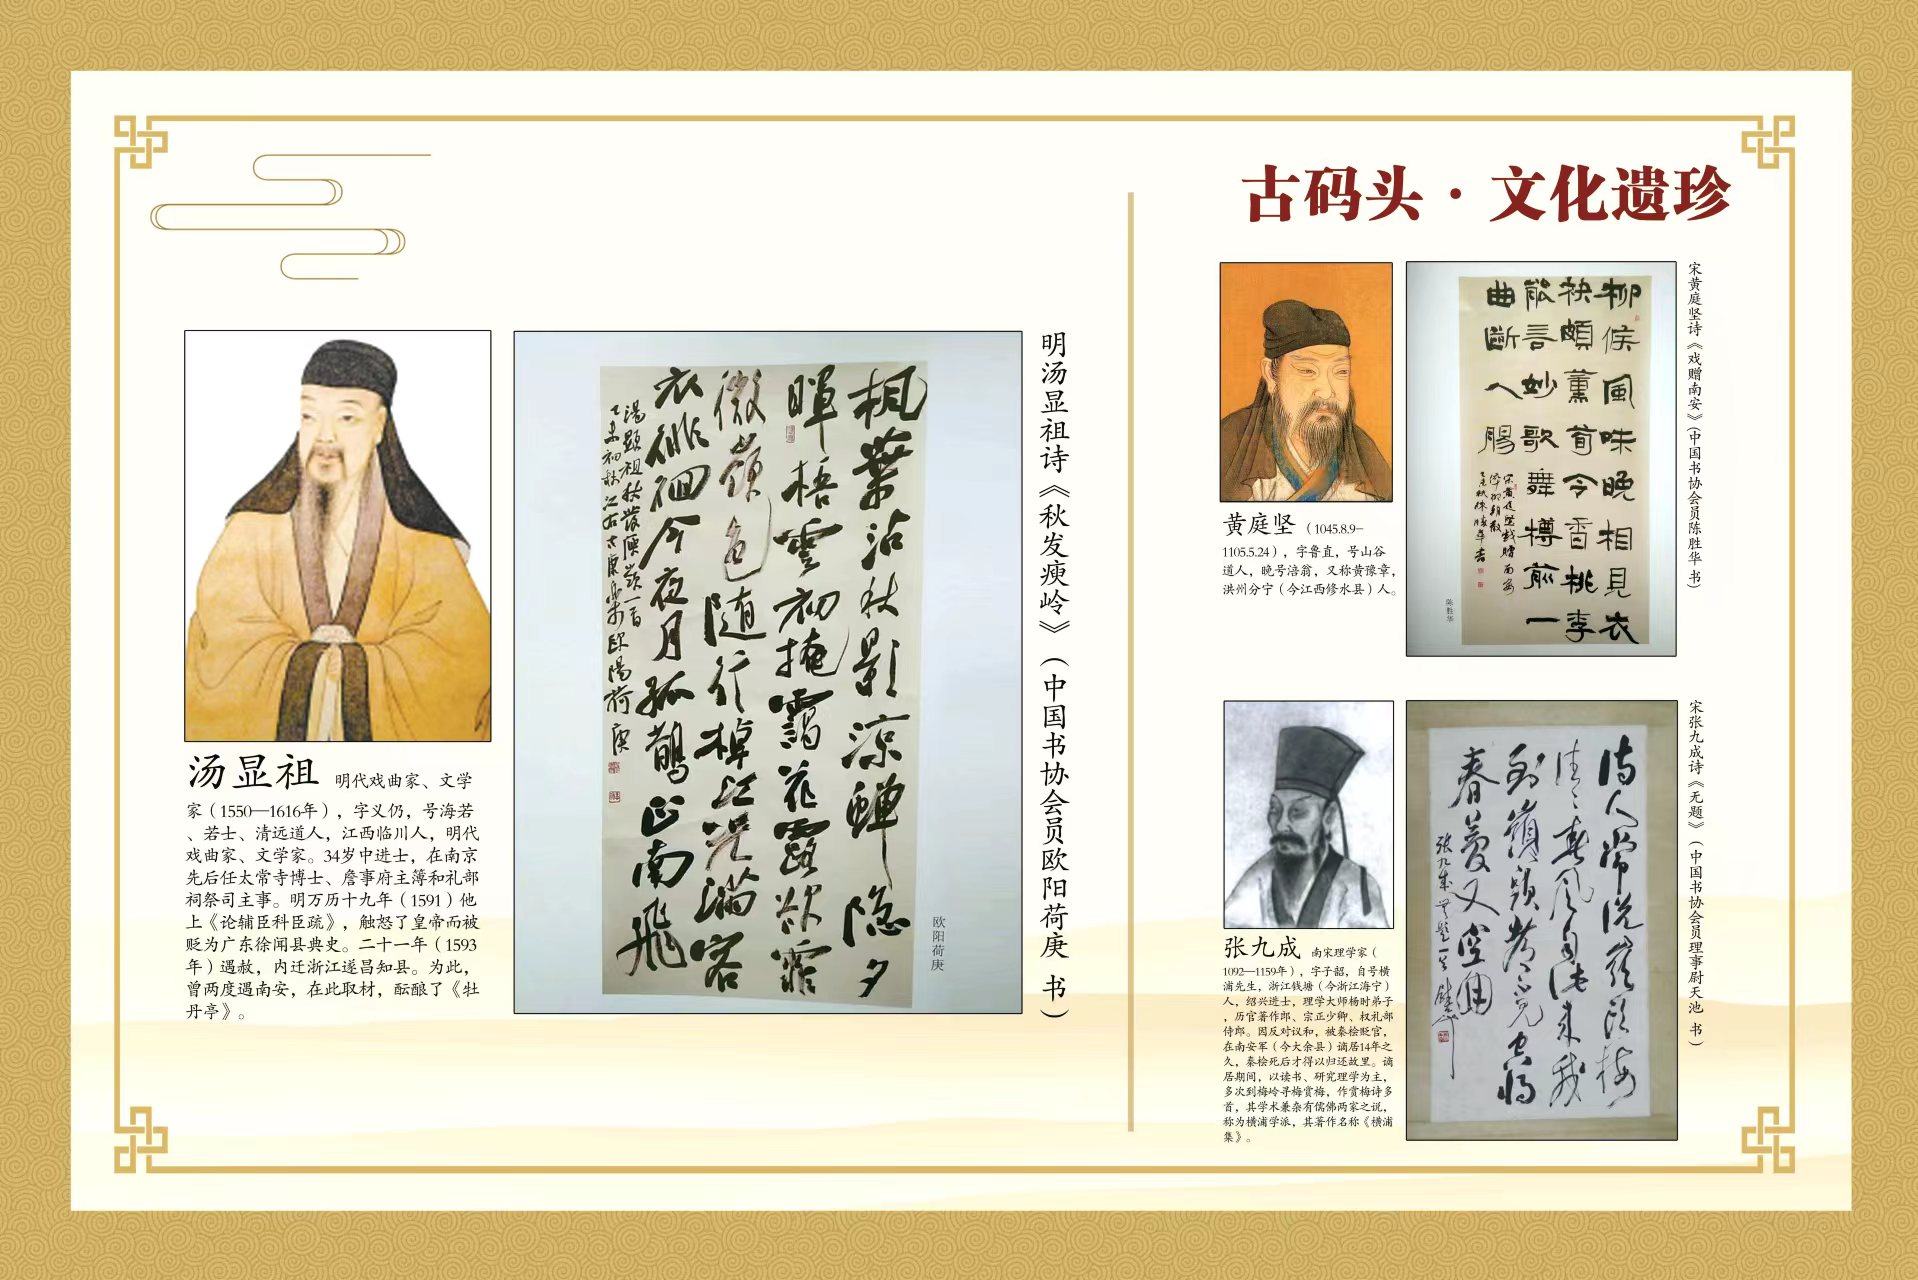 古码头·文化遗珍
汤显祖 明代戏曲家、文学
家（1550—1616年），字义仍，号海若
、若士、清远道人，江西临川人，明代
戏曲家、文学家。34岁中进士，在南京
先后任太常寺博士、詹事府主薄和礼部
祠祭司主事。明万历十九年（1591）他
上《论辅臣科臣疏》，触怒了皇帝而被
贬为广东徐闻县典史。二十一年（1593
年）遇赦，内迁浙江遂昌知县。为此，
曾两度遇南安，在此取材，酝酿了《牡
丹亭》。
枫葉沾秋影凉蝉隐夕
暉梧雲初掩靄花露欲霏
微嶺色随行棹江光满客
衣徘徊今夜月孤鹊正南飛
湯顕祖秋發庾嶺一首
欧阳荷庚
明汤显祖诗《秋发瘐岭》（中国书协会员欧阳荷庚 书）
黄庭坚（1045.8.9–
1105.5.24），字鲁直，号山谷
道人，晚号涪翁，又称黄豫章，
洪州分宁（今江西修水县）人。
柳侯風味晚相見衣
袂頗薰荀令香桃李
能言妙歌舞樽前一
曲斷人腸
陈胜华
宋黄庭坚诗《戏赠南安》（中国书协会员陈胜华 书）
张九成 南宋理学家（
1092—1159年），字子韶，自号横
浦先生，浙江钱塘（今浙江海宁）
人，绍兴进士，理学大师杨时弟子
，历官著作郎、宗正少卿、权礼部
侍郎。因反对议和，被秦桧贬官，
在南安军（今大余县）谪居14年之
久，秦桧死后才得以归还故里。谪
居期间，以读书、研究理学为主，
多次到梅岭寻梅赏梅，作赏梅诗多
首，其学术兼杂有儒佛两家之说，
称为横浦学派，其著作名称《横浦
集》。
诗人常说嶺頭梅
春夢又空回
宋张九成诗《无题》（中国书协会员理事尉天池 书）